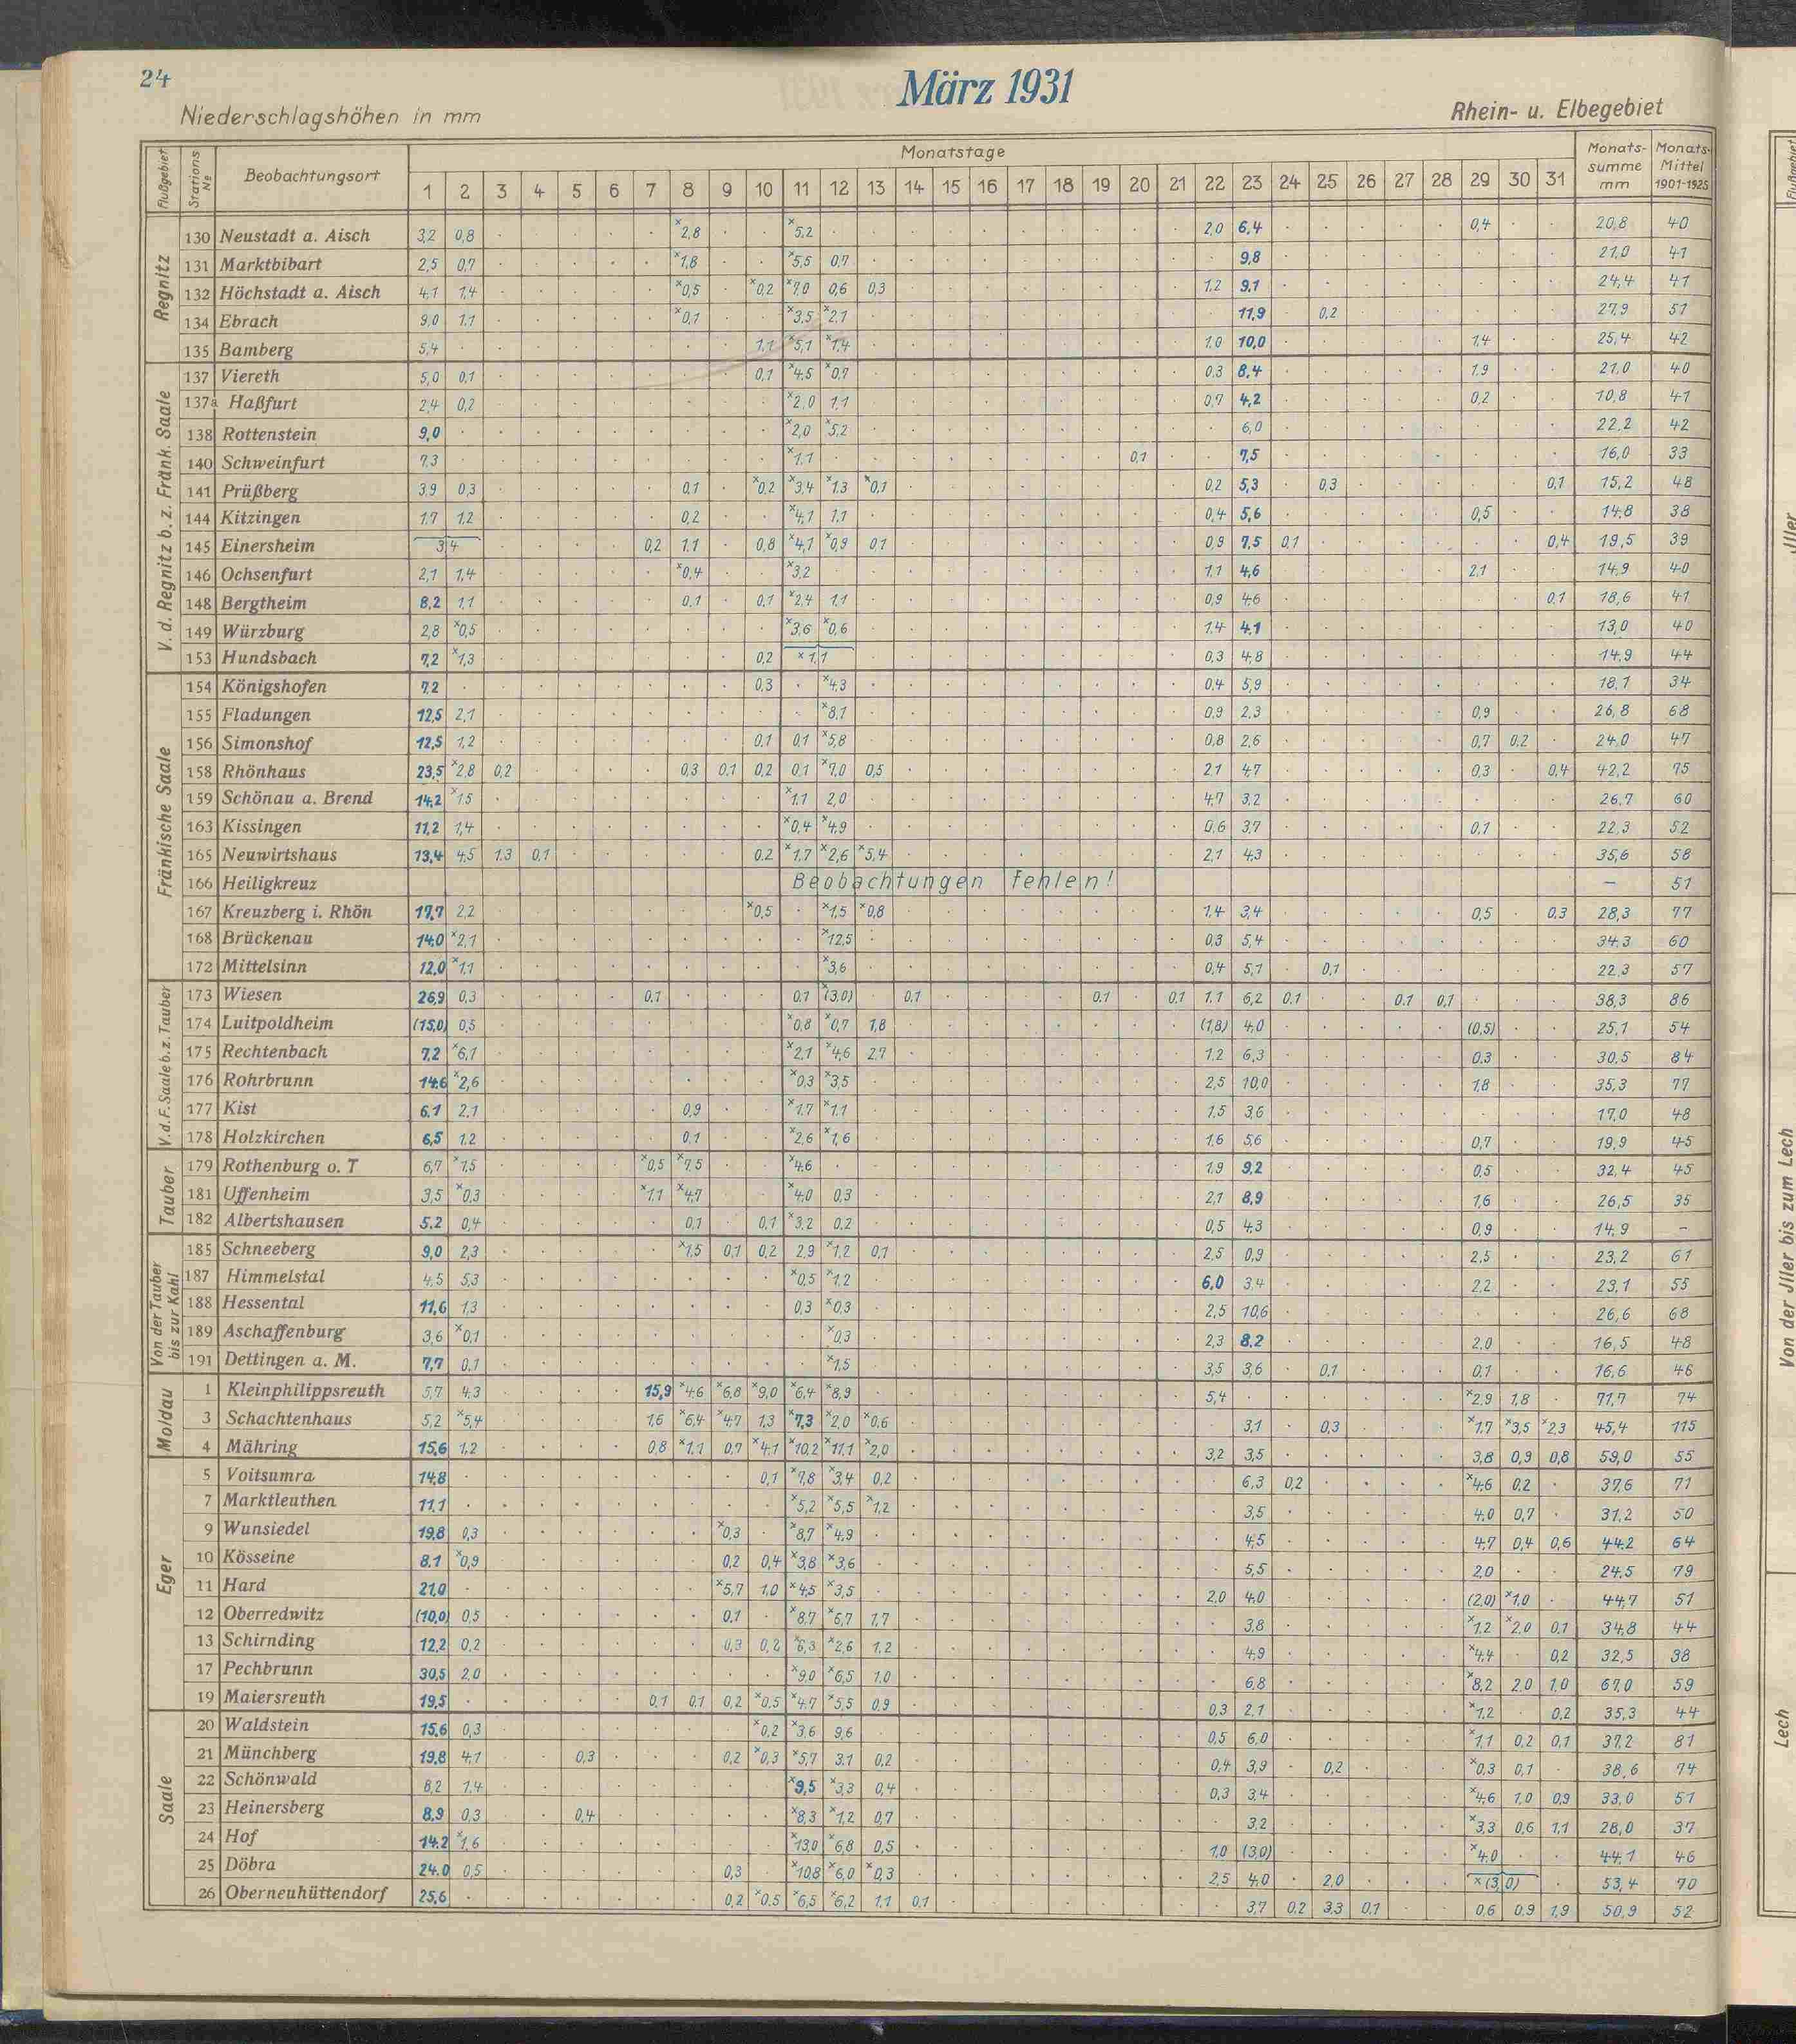 24
März 1931
Niederschlagshöhen in mm
Rhein- u. Elbegebiet
Flußgebiet Stations № Beobachtungsort Monatstage Monats-summe mm Monats-Mittel 1901-1925
1 2 3 4 5 6 7 8 9 10 11 12 13 14 15 16 17 18 19 20 21 22 23 24 25 26 27 28 29 30 31
Regnitz
130 Neustadt a. Aisch 3,2 0,8 . . . . . x2,8 . . x5,2 . . . . . . . . . . 2,0 6,4 . . . . . 0,4 . . 20,8 40
131 Marktbibart 2,5 0,7 . . . . . x1,8 . . x5,5 0,7 . . . . . . . . . . 9,8 . . . . . . . . 21,0 41
132 Höchstadt a. Aisch 4,1 1,4 . . . . . x0,5 . x0,2 x7,0 0,6 0,3 . . . . . . . . 1,2 9,1 . . . . . . . . 24,4 41
134 Ebrach 9,0 1,1 . . . . . x0,1 . . x3,5 x2,1 . . . . . . . . . . 11,9 . 0,2 . . . . . . 27,9 51
135 Bamberg 5,4 . . . . . . . . 1,1 x5,1 x1,4 . . . . . . . . . 1,0 10,0 . . . . . 1,4 . . 25,4 42
V. d. Regnitz b. z. Fränk. Saale
137 Viereth 5,0 0,1 . . . . . . . 0,1 x4,5 x0,7 . . . . . . . . . 0,3 8,4 . . . . . 1,9 . . 21,0 40
137a Haßfurt 2,4 0,2 . . . . . . . . x2,0 1,1 . . . . . . . . . 0,7 4,2 . . . . . 0,2 . . 10,8 41
138 Rottenstein 9,0 . . . . . . . . . x2,0 x5,2 . . . . . . . . . . 6,0 . . . . . . . . 22,2 42
140 Schweinfurt 7,3 . . . . . . . . . x1,1 . . . . . . . . 0,1 . . 7,5 . . . . . . . . 16,0 33
141 Prüßberg 3,9 0,3 . . . . . 0,1 . x0,2 x3,4 x1,3 x0,1 . . . . . . . . 0,2 5,3 . 0,3 . . . . . 0,1 15,2 48
144 Kitzingen 1,7 1,2 . . . . . 0,2 . . x4,1 1,1 . . . . . . . . . 0,4 5,6 . . . . . 0,5 . . 14,8 38
145 Einersheim 3,4 . . . . 0,2 1,1 . 0,8 x4,1 x0,9 0,1 . . . . . . . . 0,9 7,5 0,1 . . . . . . 0,4 19,5 39
146 Ochsenfurt 2,1 1,4 . . . . . x0,4 . . x3,2 . . . . . . . . . . 1,1 4,6 . . . . . 2,1 . . 14,9 40
148 Bergtheim 8,2 1,1 . . . . . 0,1 . 0,1 x2,4 1,1 . . . . . . . . . 0,9 4,6 . . . . . . . 0,1 18,6 41
149 Würzburg 2,8 x0,5 . . . . . . . . x3,6 x0,6 . . . . . . . . . 1,4 4,1 . . . . . . . . 13,0 40
153 Hundsbach 7,2 x1,3 . . . . . . . 0,2 x1,1 . . . . . . . . . 0,3 4,8 . . . . . . . . 14,9 44
Fränkische Saale
154 Königshofen 7,2 . . . . . . . . 0,3 . x4,3 . . . . . . . . . 0,4 5,9 . . . . . . . . 18,1 34
155 Fladungen 12,5 2,1 . . . . . . . . . x8,1 . . . . . . . . . 0,9 2,3 . . . . . 0,9 . . 26,8 68
156 Simonshof 12,5 1,2 . . . . . . . 0,1 0,1 x5,8 . . . . . . . . . 0,8 2,6 . . . . . 0,7 0,2 . 24,0 47
158 Rhönhaus 23,5 x2,8 0,2 . . . . 0,3 0,1 0,2 0,1 x7,0 0,5 . . . . . . . . 2,1 4,7 . . . . . 0,3 . 0,4 42,2 75
159 Schönau a. Brend 14,2 x1,5 . . . . . . . . x1,1 2,0 . . . . . . . . . 4,7 3,2 . . . . . . . . 26,7 60
163 Kissingen 11,2 1,4 . . . . . . . . x0,4 x4,9 . . . . . . . . . 0,6 3,7 . . . . . 0,1 . . 22,3 52
165 Neuwirtshaus 13,4 4,5 1,3 0,1 . . . . . 0,2 x1,7 x2,6 x5,4 . . . . . . . . 2,1 4,3 . . . . . . . . 35,6 58
166 Heiligkreuz Beobachtungen fehlen! – 51
167 Kreuzberg i. Rhön 17,7 2,2 . . . . . . . x0,5 . x1,5 x0,8 . . . . . . . . 1,4 3,4 . . . . . 0,5 . 0,3 28,3 77
168 Brückenau 14,0 x2,1 . . . . . . . . . x12,5 . . . . . . . . . 0,3 5,4 . . . . . . . . 34,3 60
172 Mittelsinn 12,0 x1,1 . . . . . . . . . x3,6 . . . . . . . . . 0,4 5,1 . 0,1 . . . . . . 22,3 57
V. d. F. Saale b. z. Tauber
173 Wiesen 26,9 0,3 . . . . 0,1 . . . 0,1 x(3,0) . 0,1 . . . . 0,1 . 0,1 1,1 6,2 0,1 . . 0,1 0,1 . . . 38,3 86
174 Luitpoldheim (15,0) 0,5 . . . . . . . . x0,8 x0,7 1,8 . . . . . . . . (1,8) 4,0 . . . . . (0,5) . . 25,1 54
175 Rechtenbach 7,2 x6,1 . . . . . . . . x2,1 x4,6 2,7 . . . . . . . . 1,2 6,3 . . . . . 0,3 . . 30,5 84
176 Rohrbrunn 14,6 x2,6 . . . . . . . . x0,3 x3,5 . . . . . . . . . 2,5 10,0 . . . . . 1,8 . . 35,3 77
177 Kist 6,1 2,1 . . . . . 0,9 . . x1,7 x1,1 . . . . . . . . . 1,5 3,6 . . . . . . . . 17,0 48
178 Holzkirchen 6,5 1,2 . . . . . 0,1 . . x2,6 x1,6 . . . . . . . . . 1,6 5,6 . . . . . 0,7 . . 19,9 45
Tauber
179 Rothenburg o. T 6,7 x1,5 . . . . x0,5 x7,5 . . x4,6 . . . . . . . . . . 1,9 9,2 . . . . . 0,5 . . 32,4 45
181 Uffenheim 3,5 x0,3 . . . . x1,1 x4,7 . . x4,0 0,3 . . . . . . . . . 2,1 8,9 . . . . . 1,6 . . 26,5 35
182 Albertshausen 5,2 0,4 . . . . . 0,1 . 0,1 x3,2 0,2 . . . . . . . . . 0,5 4,3 . . . . . 0,9 . . 14,9 –
Von der Tauber bis zur Kahl
185 Schneeberg 9,0 2,3 . . . . . x1,5 0,1 0,2 2,9 x1,2 0,1 . . . . . . . . 2,5 0,9 . . . . . 2,5 . . 23,2 61
187 Himmelstal 4,5 5,3 . . . . . . . . x0,5 x1,2 . . . . . . . . . 6,0 3,4 . . . . . 2,2 . . 23,1 55
188 Hessental 11,6 1,3 . . . . . . . . 0,3 x0,3 . . . . . . . . . 2,5 10,6 . . . . . . . . 26,6 68
189 Aschaffenburg 3,6 x0,1 . . . . . . . . . x0,3 . . . . . . . . . 2,3 8,2 . . . . . 2,0 . . 16,5 48
191 Dettingen a. M. 7,7 0,1 . . . . . . . . . x1,5 . . . . . . . . . 3,5 3,6 . 0,1 . . . 0,1 . . 16,6 46
Moldau
1 Kleinphilippsreuth 5,7 4,3 . . . . 15,9 x4,6 x6,8 x9,0 x6,4 x8,9 . . . . . . . . . 5,4 . . . . . . x2,9 1,8 . 71,7 74
3 Schachtenhaus 5,2 x5,4 . . . . 1,6 x6,4 x4,7 1,3 x7,3 x2,0 x0,6 . . . . . . . . . 3,1 . 0,3 . . . x1,7 x3,5 x2,3 45,4 115
4 Mähring 15,6 1,2 . . . . 0,8 x1,1 0,7 x4,1 x10,2 x11,1 x2,0 . . . . . . . . 3,2 3,5 . . . . . 3,8 0,9 0,8 59,0 55
Eger
5 Voitsumra 14,8 . . . . . . . . 0,1 x7,8 x3,4 0,2 . . . . . . . . . 6,3 0,2 . . . . x4,6 0,2 . 37,6 71
7 Marktleuthen 11,1 . . . . . . . . . x5,2 x5,5 x1,2 . . . . . . . . . 3,5 . . . . . 4,0 0,7 . 31,2 50
9 Wunsiedel 19,8 0,3 . . . . . . x0,3 . x8,7 x4,9 . . . . . . . . . . 4,5 . . . . . 4,7 0,4 0,6 44,2 64
10 Kösseine 8,1 x0,9 . . . . . . 0,2 0,4 x3,8 x3,6 . . . . . . . . . . 5,5 . . . . . 2,0 . . 24,5 79
11 Hard 21,0 . . . . . . . x5,7 1,0 x4,5 x3,5 . . . . . . . . . 2,0 4,0 . . . . . (2,0) x1,0 . 44,7 51
12 Oberredwitz (10,0) 0,5 . . . . . . 0,1 . x8,7 x6,7 1,7 . . . . . . . . . 3,8 . . . . . x1,2 x2,0 0,1 34,8 44
13 Schirnding 12,2 0,2 . . . . . . 0,3 0,2 x6,3 x2,6 1,2 . . . . . . . . . 4,9 . . . . . x4,4 . 0,2 32,5 38
17 Pechbrunn 30,5 2,0 . . . . . . . . x9,0 x6,5 1,0 . . . . . . . . . 6,8 . . . . . x8,2 2,0 1,0 67,0 59
19 Maiersreuth 19,5 . . . . . 0,1 0,1 0,2 x0,5 x4,7 x5,5 0,9 . . . . . . . . 0,3 2,1 . . . . . x1,2 . 0,2 35,3 44
Saale
20 Waldstein 15,6 0,3 . . . . . . . x0,2 x3,6 9,6 . . . . . . . . . 0,5 6,0 . . . . . x1,1 0,2 0,1 37,2 81
21 Münchberg 19,8 4,1 . . 0,3 . . . 0,2 x0,3 x5,7 3,1 0,2 . . . . . . . . 0,4 3,9 . 0,2 . . . x0,3 0,1 . 38,6 74
22 Schönwald 8,2 1,4 . . . . . . . . x9,5 x3,3 0,4 . . . . . . . . 0,3 3,4 . . . . . x4,6 1,0 0,9 33,0 51
23 Heinersberg 8,9 0,3 . . 0,4 . . . . . x8,3 x1,2 0,7 . . . . . . . . . 3,2 . . . . . x3,3 0,6 1,1 28,0 37
24 Hof 14,2 x1,6 . . . . . . . . x13,0 x6,8 0,5 . . . . . . . . 1,0 (3,0) . . . . . x4,0 . . 44,1 46
25 Döbra 24,0 0,5 . . . . . . 0,3 . x10,8 x6,0 x0,3 . . . . . . . . 2,5 4,0 . 2,0 . . . x(3,0) . 53,4 70
26 Oberneuhüttendorf 25,6 . . . . . . . 0,2 x0,5 x6,5 x6,2 1,1 0,1 . . . . . . . . 3,7 0,2 3,3 0,1 . . 0,6 0,9 1,9 50,9 52
Flußgebiet
Jller
Von der Jller bis zum Lech
Lech